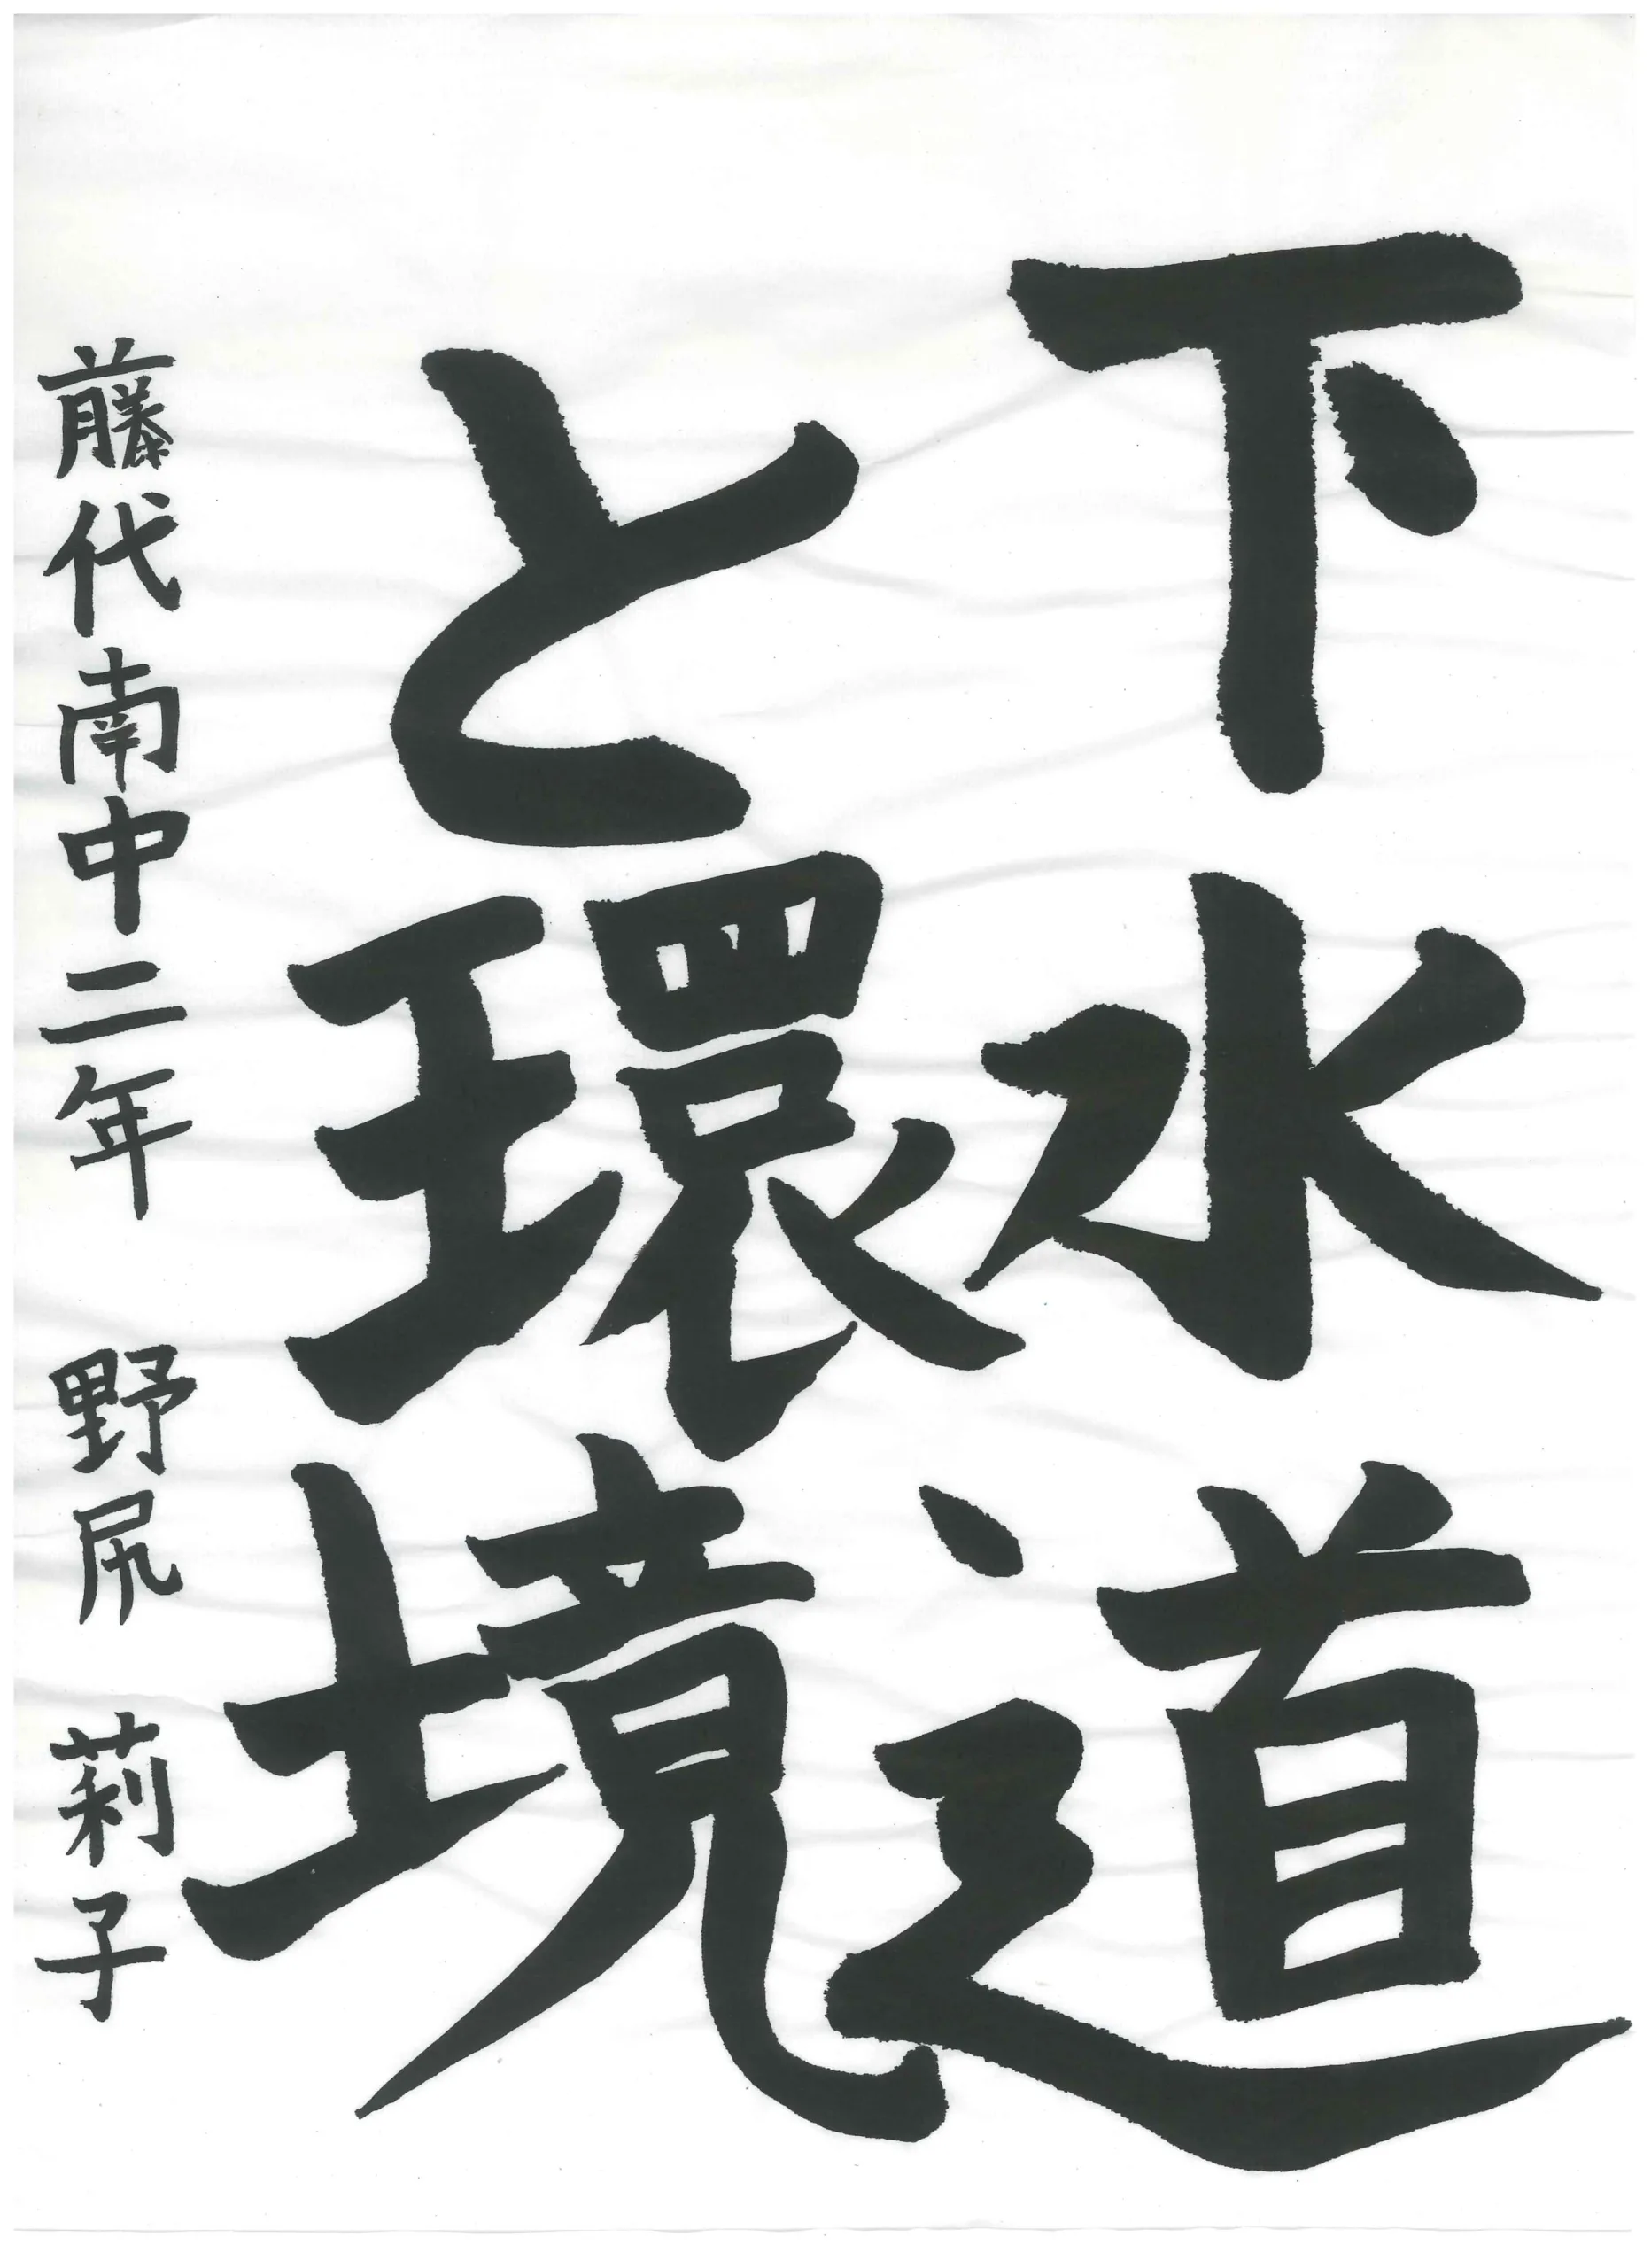 下水道
と環境
藤代南中二年 野尻 莉子